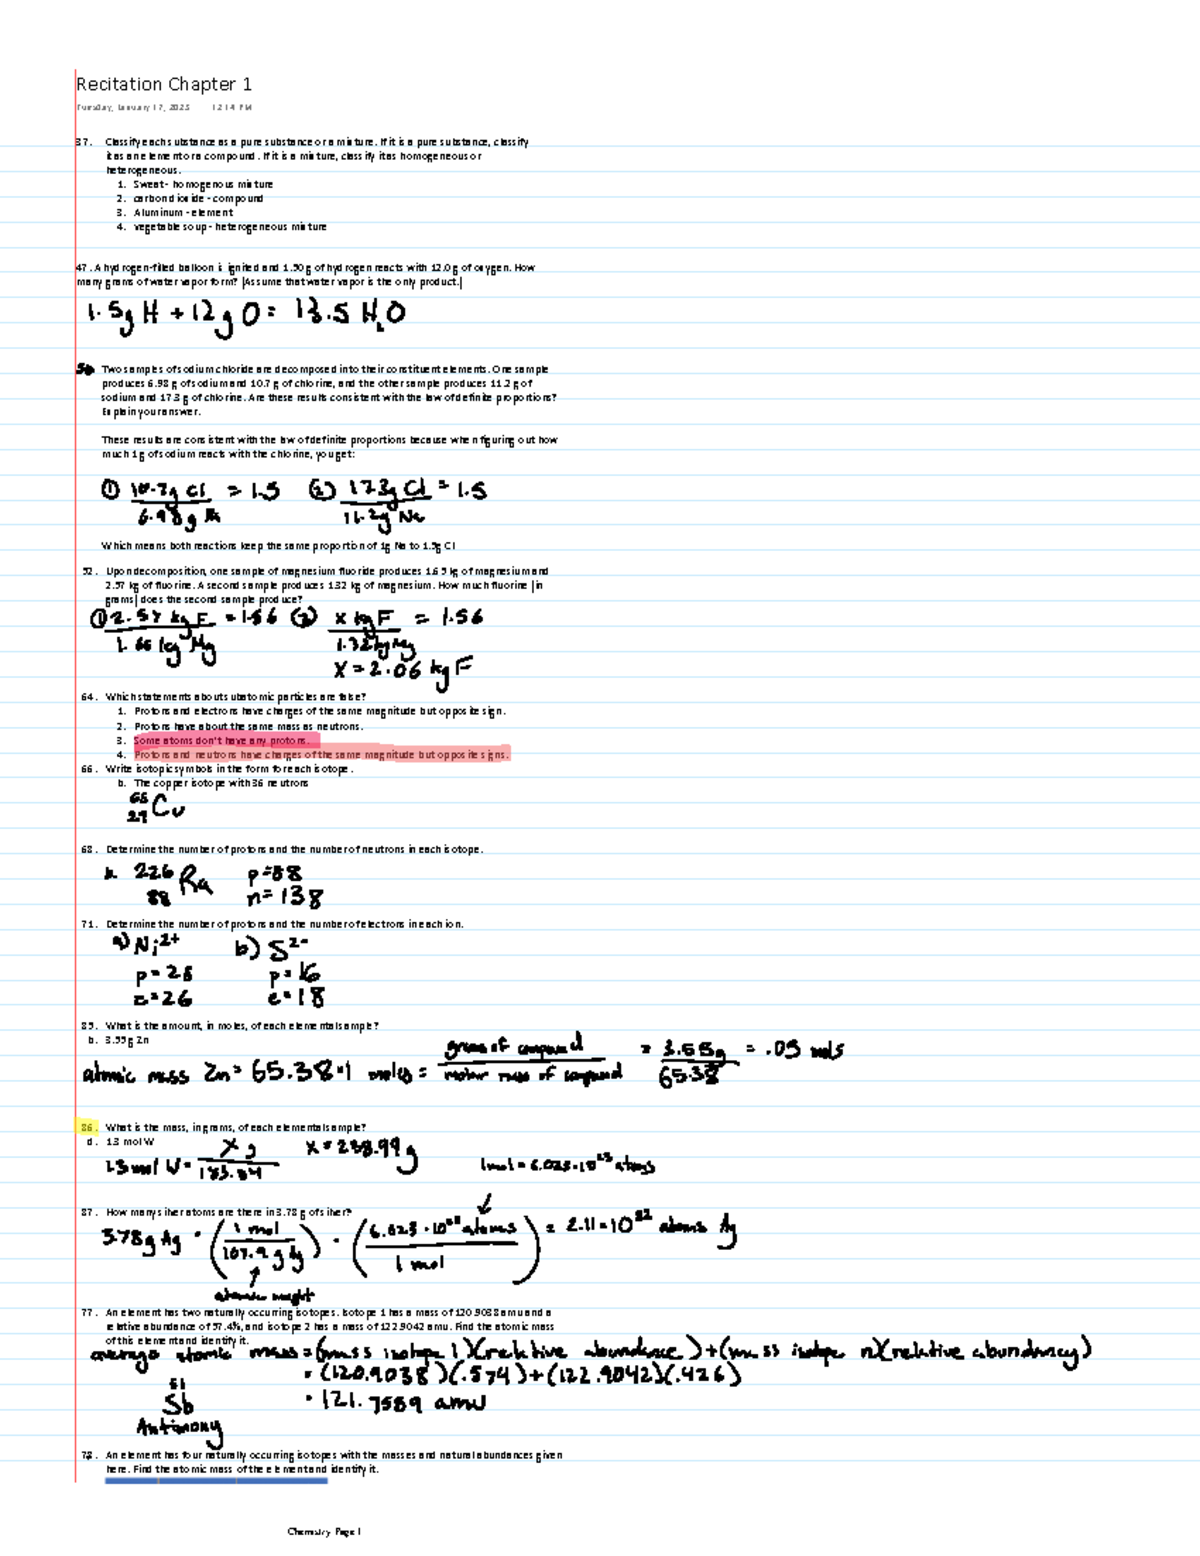 Recitation Chapter 1
Tuesday, January 17, 2023 12:14 PM
37. Classify each substance as a pure substance or a mixture. If it is a pure substance, classify
it as an element or a compound. If it is a mixture, classify it as homogeneous or
heterogeneous.
1. Sweat - homogenous mixture
2. carbon dioxide - compound
3. Aluminum - element
4. vegetable soup - heterogeneous mixture
47. A hydrogen-filled balloon is ignited and 1.50 g of hydrogen reacts with 12.0 g of oxygen. How
many grams of water vapor form? (Assume that water vapor is the only product.)
1.5g H + 12g O = 13.5 H2O
50 Two samples of sodium chloride are decomposed into their constituent elements. One sample
produces 6.98 g of sodium and 10.7 g of chlorine, and the other sample produces 11.2 g of
sodium and 17.3 g of chlorine. Are these results consistent with the law of definite proportions?
Explain your answer.
These results are consistent with the law of definite proportions because when figuring out how
much 1 g of sodium reacts with the chlorine, you get:
① 10.7g Cl = 1.5 ② 17.3g Cl = 1.5
6.98g Na 11.2g Na
Which means both reactions keep the same proportion of 1g Na to 1.5g Cl
52. Upon decomposition, one sample of magnesium fluoride produces 1.65 kg of magnesium and
2.57 kg of fluorine. A second sample produces 1.32 kg of magnesium. How much fluorine (in
grams) does the second sample produce?
① 2.57 kg F = 1.56 ② x kg F = 1.56
1.65 kg Mg 1.32 kg Mg
x = 2.06 kg F
64. Which statements about subatomic particles are false?
1. Protons and electrons have charges of the same magnitude but opposite sign.
2. Protons have about the same mass as neutrons.
3. Some atoms don't have any protons.
4. Protons and neutrons have charges of the same magnitude but opposite signs.
66. Write isotopic symbols in the form for each isotope.
b. The copper isotope with 36 neutrons
65
29 Cu
68. Determine the number of protons and the number of neutrons in each isotope.
226 Ra p=88
88 n=138
71. Determine the number of protons and the number of electrons in each ion.
a) Ni2+ b) S2-
p=28 p=16
e=26 e=18
85. What is the amount, in moles, of each elemental sample?
b. 3.55g Zn
grams of compound = 3.55g = .05 mols
atomic mass Zn = 65.38·1 moles = molar mass of compound 65.38
86. What is the mass, in grams, of each elemental sample?
d. 1.3 mol W
1.3 mol W = x g x = 238.99 g
183.84 1 mol = 6.023·10^23 atoms
87. How many silver atoms are there in 3.78 g of silver?
3.78g Ag · (1 mol / 107.9 g Ag) · (6.023·10^23 atoms / 1 mol) = 2.11·10^22 atoms Ag
atomic weight
77. An element has two naturally occurring isotopes. Isotope 1 has a mass of 120.9038 amu and a
relative abundance of 57.4%, and isotope 2 has a mass of 122.9042 amu. Find the atomic mass
of this element and identify it.
average atomic mass = (mass isotope 1)(relative abundance) + (mass isotope n)(relative abundancy)
= (120.9038)(.574) + (122.9042)(.426)
= 121.7559 amu
51
Sb
Antimony
78. An element has four naturally occurring isotopes with the masses and natural abundances given
here. Find the atomic mass of the element and identify it.
Chemistry Page 1